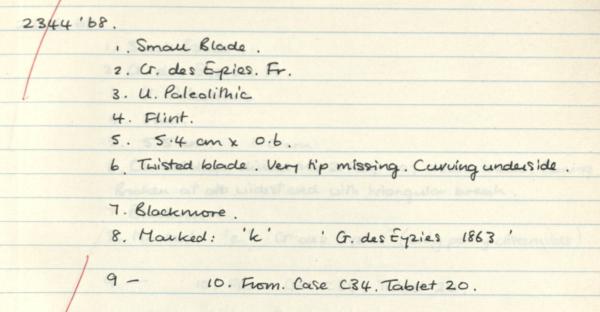 2344 '68.
1. Small Blade.
2. Gr. des Eyzies. Fr.
3. U. Paleolithic
4. Flint.
5. 5.4 cm x 0.6.
6. Twisted blade. Very tip missing. Curving underside.
7. Blackmore.
8. Marked: 'k' 'G. des Eyzies 1863'
9 – 10. From. Case C34. Tablet 20.